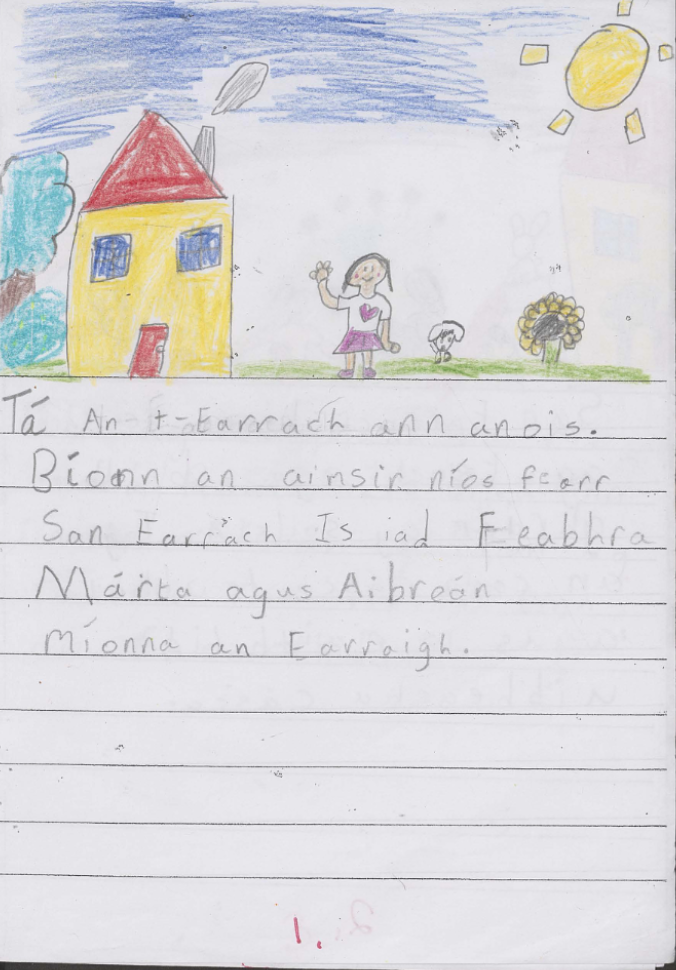 Tá An t-Earrach ann anois.
Bíonn an aimsir níos fearr
San Earrach Is iad Feabhra
Márta agus Aibreán
Míonna an Earraigh.
1.